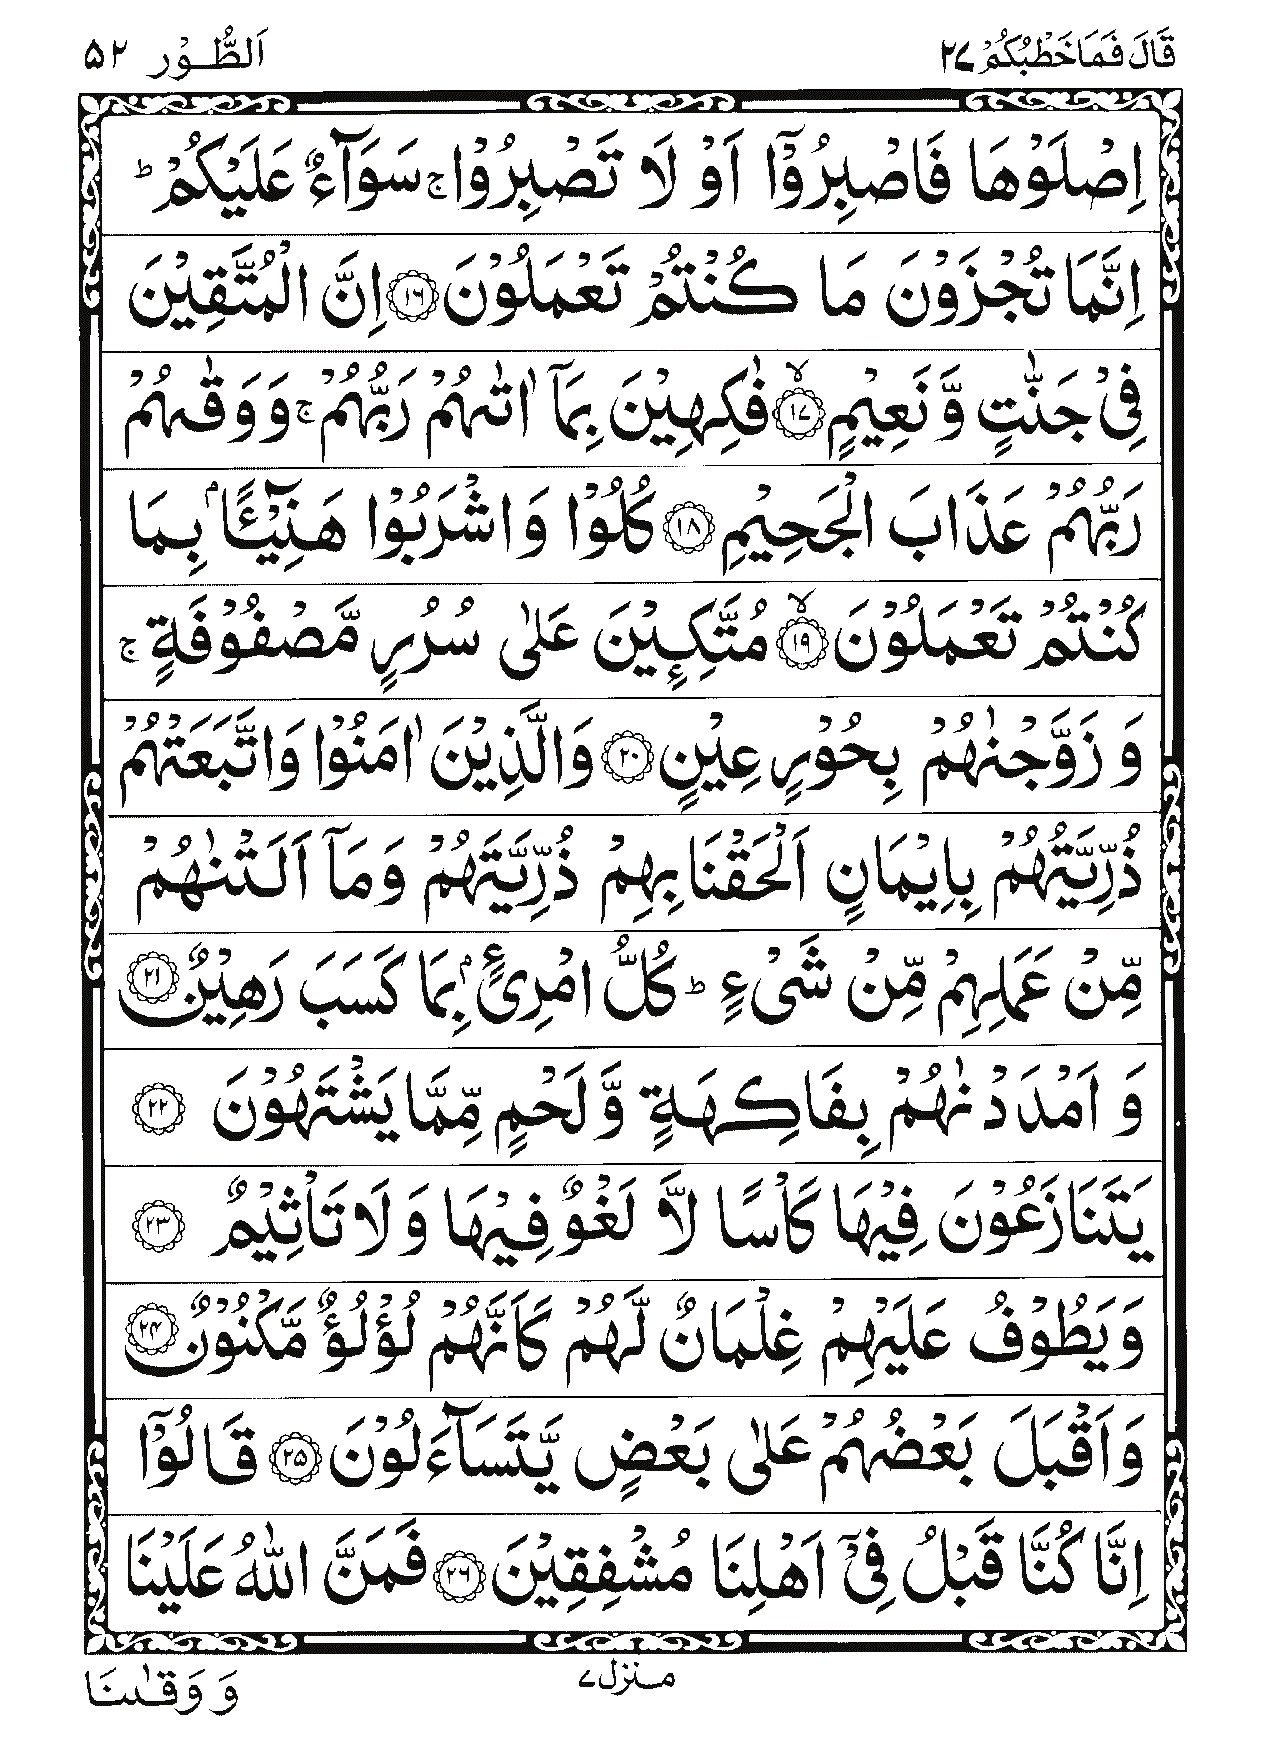 قَالَ فَمَا خَطْبُكُمْ ۲۷
اَلطُّوْر ۵۲
اِصْلَوْهَا فَاصْبِرُوْۤا اَوْ لَا تَصْبِرُوْا ۚ سَوَآءٌ عَلَيْكُمْ ؕ
اِنَّمَا تُجْزَوْنَ مَا كُنْتُمْ تَعْمَلُوْنَ ﴿۱۶﴾ اِنَّ الْمُتَّقِيْنَ
فِيْ جَنّٰتٍ وَّ نَعِيْمٍ ﴿ۙ۱۷﴾ فٰكِهِيْنَ بِمَاۤ اٰتٰىهُمْ رَبُّهُمْ ۚ وَ وَقٰىهُمْ
رَبُّهُمْ عَذَابَ الْجَحِيْمِ ﴿۱۸﴾ كُلُوْا وَ اشْرَبُوْا هَنِيْٓـًٔۢا بِمَا
كُنْتُمْ تَعْمَلُوْنَ ﴿ۙ۱۹﴾ مُتَّكِـِٕيْنَ عَلٰى سُرُرٍ مَّصْفُوْفَةٍ ۚ
وَ زَوَّجْنٰهُمْ بِحُوْرٍ عِيْنٍ ﴿۲۰﴾ وَالَّذِيْنَ اٰمَنُوْا وَاتَّبَعَتْهُمْ
ذُرِّيَّتُهُمْ بِاِيْمَانٍ اَلْحَقْنَا بِهِمْ ذُرِّيَّتَهُمْ وَمَاۤ اَلَتْنٰهُمْ
مِّنْ عَمَلِهِمْ مِّنْ شَيْءٍ ؕ كُلُّ امْرِئٍۢ بِمَا كَسَبَ رَهِيْنٌ ﴿۲۱﴾
وَ اَمْدَدْنٰهُمْ بِفَاكِهَةٍ وَّ لَحْمٍ مِّمَّا يَشْتَهُوْنَ ﴿۲۲﴾
يَتَنَازَعُوْنَ فِيْهَا كَاْسًا لَّا لَغْوٌ فِيْهَا وَ لَا تَاْثِيْمٌ ﴿۲۳﴾
وَيَطُوْفُ عَلَيْهِمْ غِلْمَانٌ لَّهُمْ كَاَنَّهُمْ لُؤْلُؤٌ مَّكْنُوْنٌ ﴿۲۴﴾
وَاَقْبَلَ بَعْضُهُمْ عَلٰى بَعْضٍ يَّتَسَآءَلُوْنَ ﴿۲۵﴾ قَالُوْۤا
اِنَّا كُنَّا قَبْلُ فِيْۤ اَهْلِنَا مُشْفِقِيْنَ ﴿۲۶﴾ فَمَنَّ اللّٰهُ عَلَيْنَا
منزل ۷
وَ وَقٰىنَا